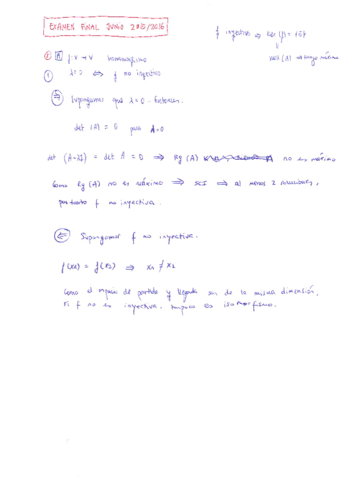 EXAMEN FINAL JUNIO 2015/2016
f inyectiva ⇒ Ker(f) = {0}
⇓
f: V → V homomorfismo
λ=0 ⇔ f no inyectiva
⇒ Supongamos que λ=0. Entonces:
det (A) = 0 pues λ=0
det (A-λI) = det A = 0 ⇒ Rg (A) no es máximo
Como Rg(A) no es máximo ⇒ SCI ⇒ al menos 2 soluciones,
por tanto f no inyectiva.
⇐ Supongamos f no inyectiva.
f(x1) = f(x2) ⇒ x1 ≠ x2
Como el espacio de partida y llegada son de la misma dimensión,
si f no es inyectiva, tampoco es isomorfismo.